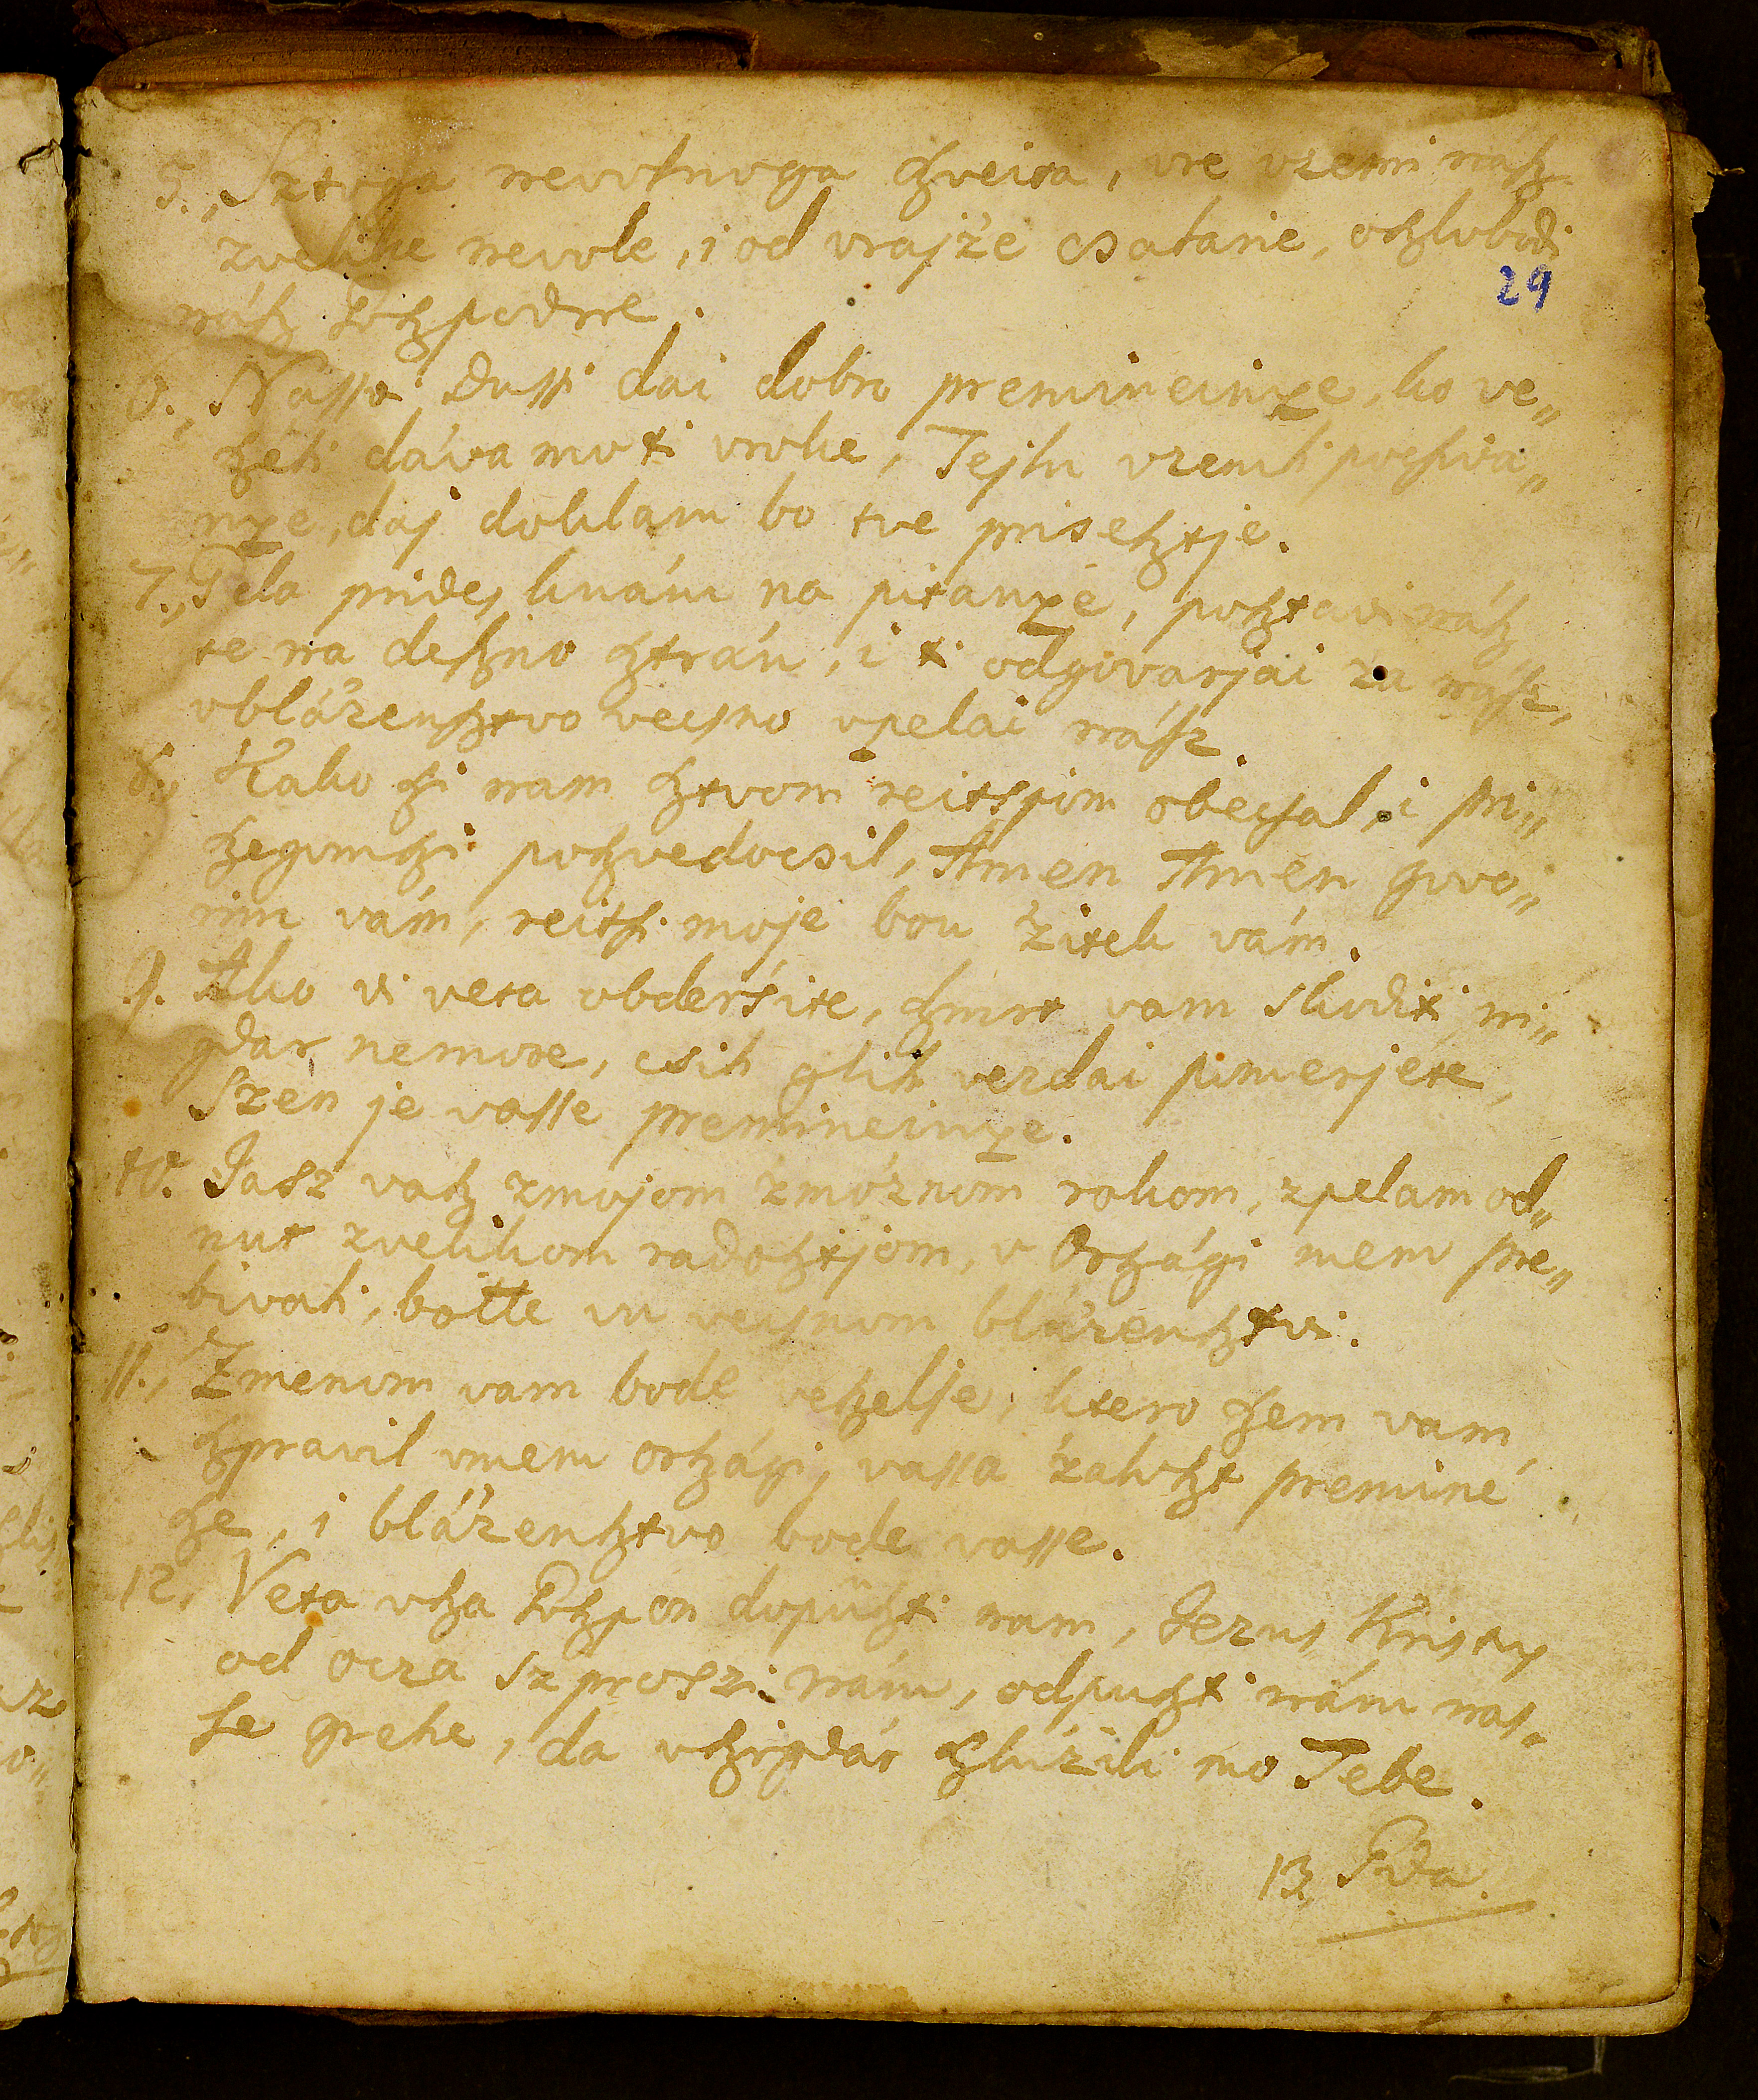 5., Sztoga nevolnoga szveita, vre vzemi násh
zvelike nevole, i od vrajže csatane, oszlobodi
29
nász Goszpodne.
6., Nassoi Dussi dai dobro premineinye, ko ve„
széli dávamo ti vroke, Tejlu vzemli pocsiva„
nye, daj doklam bo tve prisesztje.
7., Tela prides knám na pitanyé, posztavi nász
te na deszno sztrán, i ti odgovarjai za nász,
vblázensztvo vecsno vpelai nász.
8., Kako szi nam sztvom reitspom obecsal, i pri„
szegomszi poszvedocsil, Amen Amen govo„
rim vám, reitsi moje bou žitek vám.
9. Ako vi veta obderśite, szmrt vam skoditi ni„
gdar nemore, csih glih vezdai pomerjete,
Szen je vasse premineinye.
10. Jasz vasz zmojom zmóznom rokom, zpelam od„
nut zvelikom radosztjom, v Országi mem pre„
bivati, boite vu vecsnom blázensztvi.
11., Zmenom vam bode veszelje, ktero szem vam
szpravil vmem országi, vassa žaloszt premine
sze, i blázensztvo bode vasse.
12, Veta vsza Goszpon dopüszti nam, Jezus Kristus
od ocza szproszi nám, odpuszti nám nas„
se grehe, da vszigdár szlúžili mo Tebe.
13,